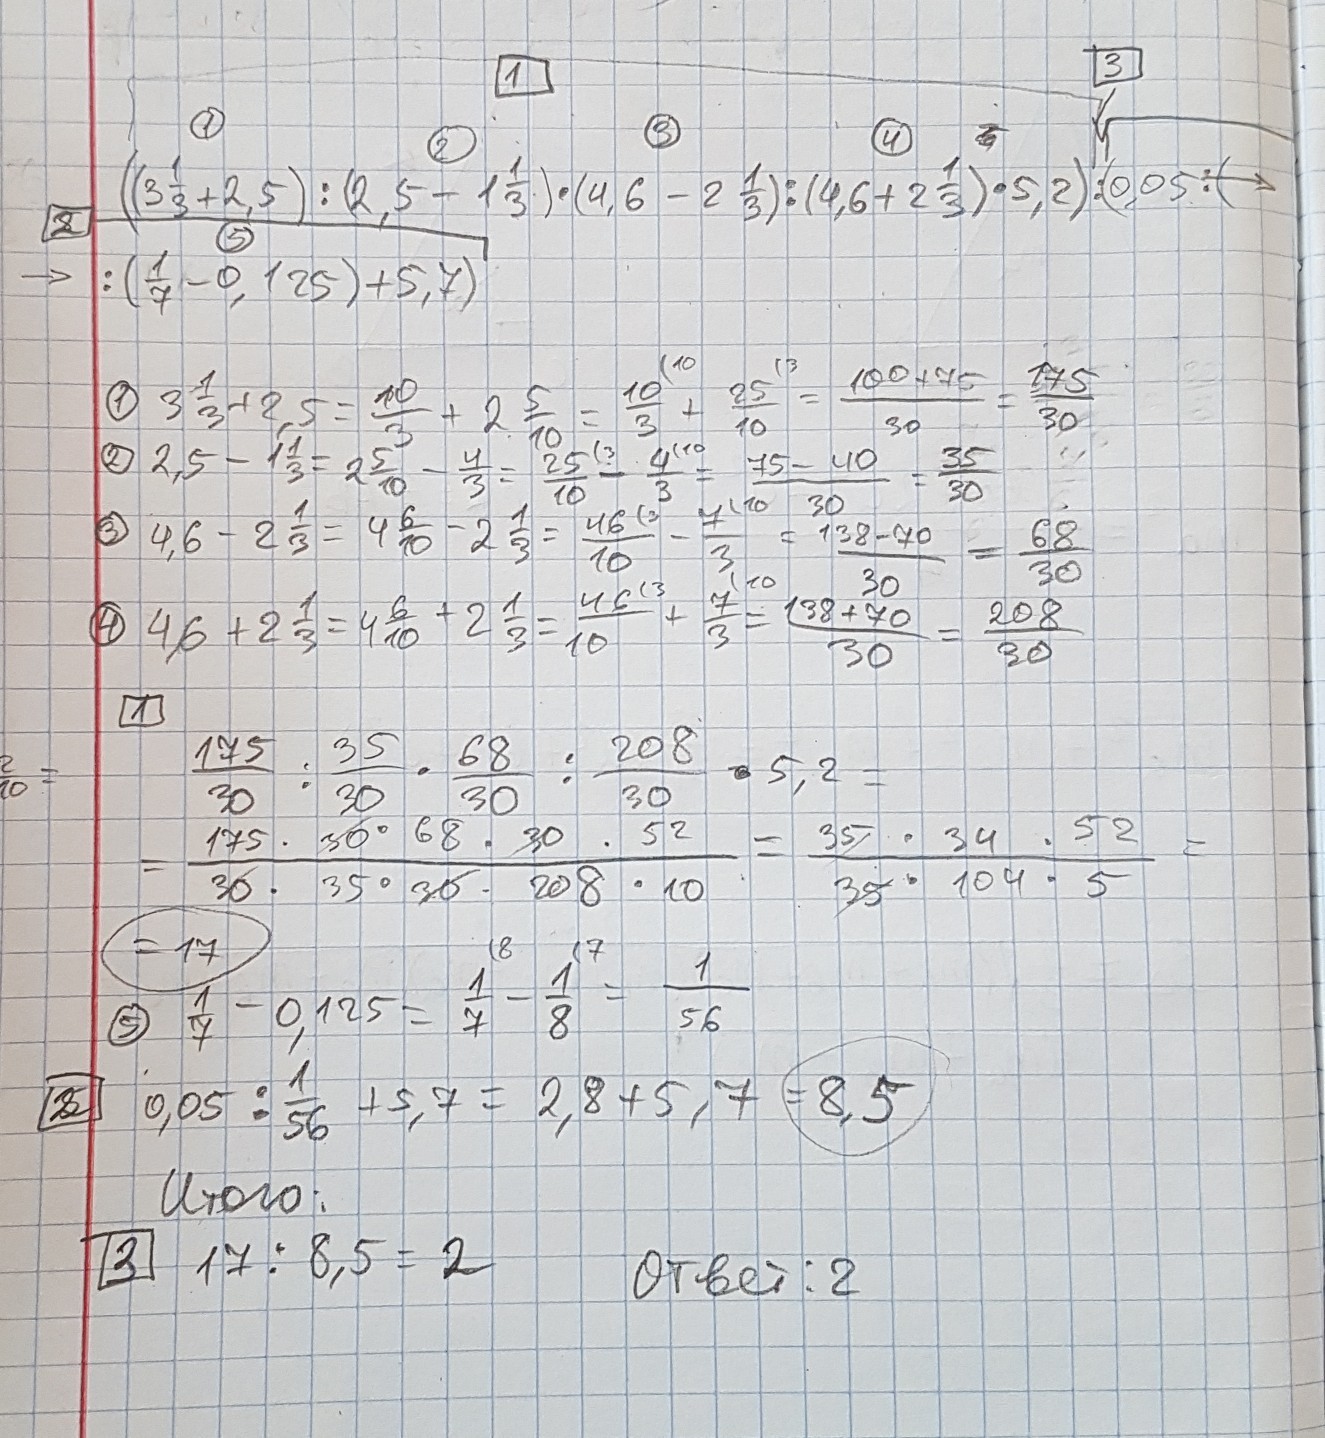 1
3
① ② ③ ④
((3 1/3 + 2,5) : (2,5 − 1 1/3) · (4,6 − 2 1/3) : (4,6 + 2 1/3) · 5,2) : (0,05 : ( →
2 ⑤
→ : (1/7 − 0,125) + 5,7)
① 3 1/3 + 2,5 = 10/3 + 2 5/10 = 10/3 (10 + 25/10 (3 = (100+75)/30 = 175/30
② 2,5 − 1 1/3 = 2 5/10 − 4/3 = 25/10 (3 − 4/3 (10 = (75 − 40)/30 = 35/30
③ 4,6 − 2 1/3 = 4 6/10 − 2 1/3 = 46/10 (3 − 7/3 (10 = (138−70)/30 = 68/30
④ 4,6 + 2 1/3 = 4 6/10 + 2 1/3 = 46/10 (3 + 7/3 (10 = (138+70)/30 = 208/30
1
2/10 =
175/30 : 35/30 · 68/30 : 208/30 · 5,2 =
= (175 · 30 · 68 · 30 · 52)/(30 · 35 · 30 · 208 · 10) = (35 · 34 · 52)/(35 · 104 · 5) =
= 17
⑤ 1/7 − 0,125 = 1/7 (8 − 1/8 (7 = 1/56
2 0,05 : 1/56 + 5,7 = 2,8 + 5,7 = 8,5
Итого:
3 17 : 8,5 = 2 Ответ: 2